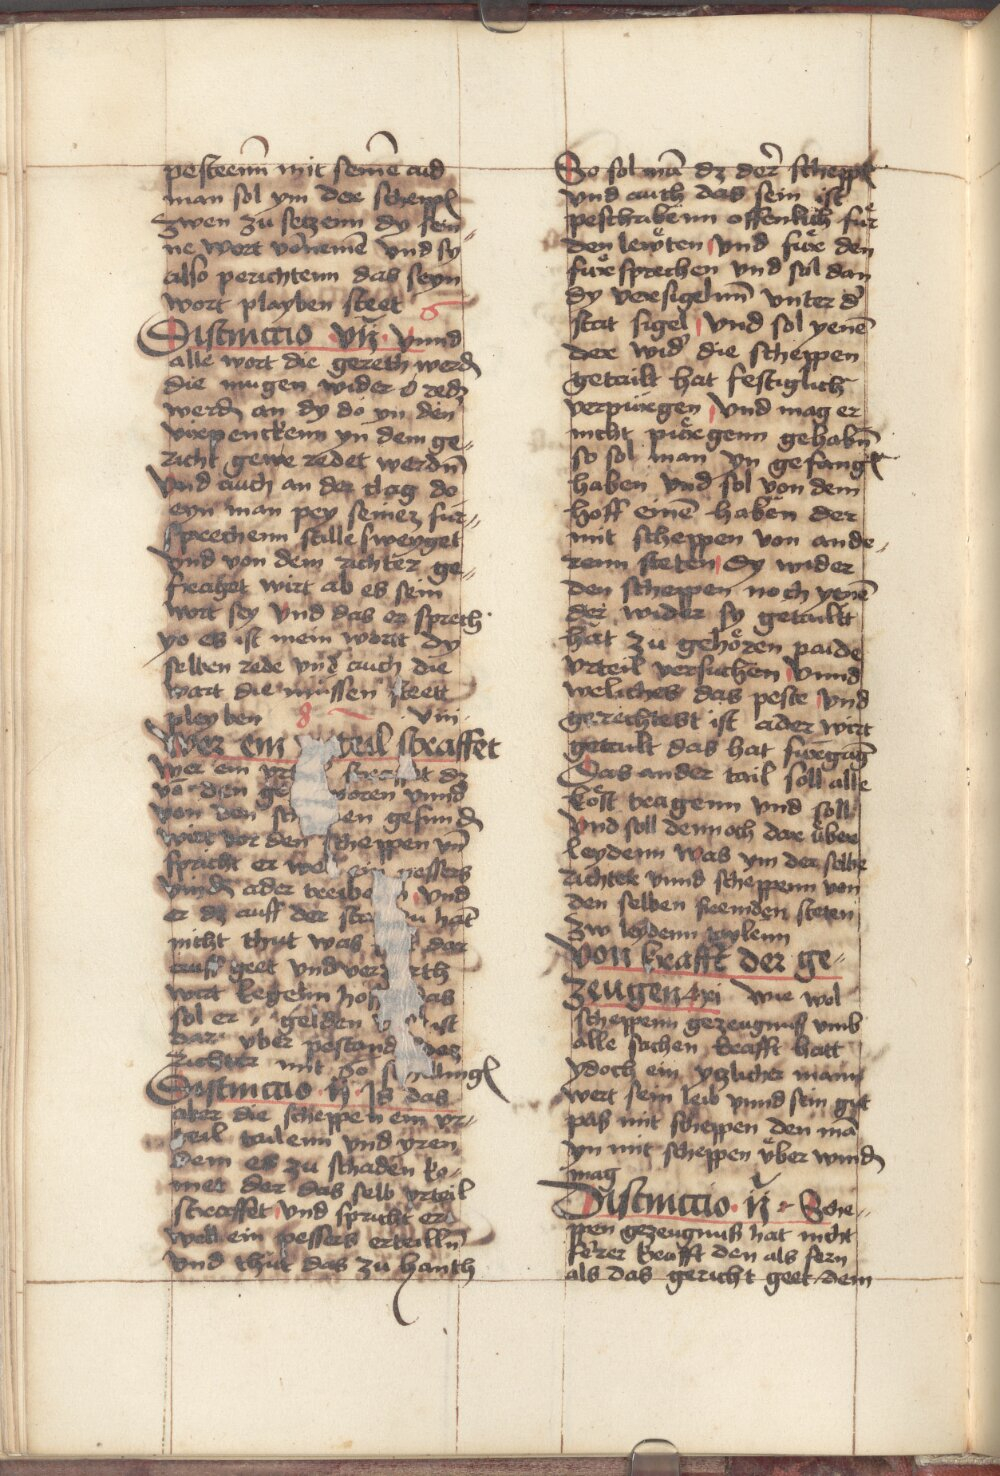 pesteenn mit seinē aid
man sol ym der schepp
zwen zu setzenn dy sein
ne wort vornemē vnd sy
also perichtenn das seyn
wort playben steet
Distinctio vij vnnd
alle wort die gereth werdn
die mugen wider redt
werdn an dy do yn den
vierpenckenn yn dem ge
richt gewe redet werdn
vnd auch an der clag do
eyn man pey seinez fur
sprechenn stille sweyget
vnd von dem richter ge
fraget wirt ab es sein
wort sey vnd das er sprech
yo es ist mein wortt dy
selben rede vnd auch die
wart die mussen steett
pleyben viii
Wer ein teil straffet
wer ein vrt straffet dz
vō den ge voren vnnd
von den sch en gefundn
wirt vor den scheppen vn
spricht er wel ein pessers
vinden ader treiben vnd
er dz auff der stat zu hāt
nicht thut was der
auff geet vnd verz rth
wirt kegelnn hoff das
sol er gelden ist
dar vber pestand dez
richter mit schilling
Distinctio ij Is das
aber die scheppen ein vr
teil tailenn vnd yren
dem es zu schaden ko
met der das selb vrteil
straffet vnd spricht er
woll ein pessers erteilln
vnd thut das zu hanth
So sol mā dz der schepp
vnd auch das sein ist
peschribenn offenlich fur
den lewten vnd fure den
fursprechen vnd sol dan
dy versigelnn vnter d
stat sigel vnd sol yenē
der wid die scheppen
getailt hat festiglich
verpurgen vnd mag er
nicht purgenn gehabn
so sol man yn gefang
haben vnd sol von dem
hoff einē haben der
mit scheppen von ande
renn steten dy wider
den scheppen noch yenē
der wider sy getailtt
hat zu gehoren paide
vrteil versuchen vnnd
weliches das peste vnd
gerechtest ist ader wirt
getailt das hat furgāg
Das ander tail soll alle
kost tragenn vnd soll
vnd soll dennoch dar vber
leydenn was ym der selbe
richter vnnd scheppenn von
den selben fremden steten
zw leydenn taylenn
von krafft der ge
zeugen xi wie wol
scheppenn gezeugnuß vmb
alle sachen krafft hatt
ydoch ein yzlicher mann
wert sein leib vnnd sein gut
pas mit scheppen den mā
yn mit scheppen vber windn
mag
Distinctio ij Sche
ppen gezeugnuß hat nicht
ferer krafft den als fern
als das gericht geet dem